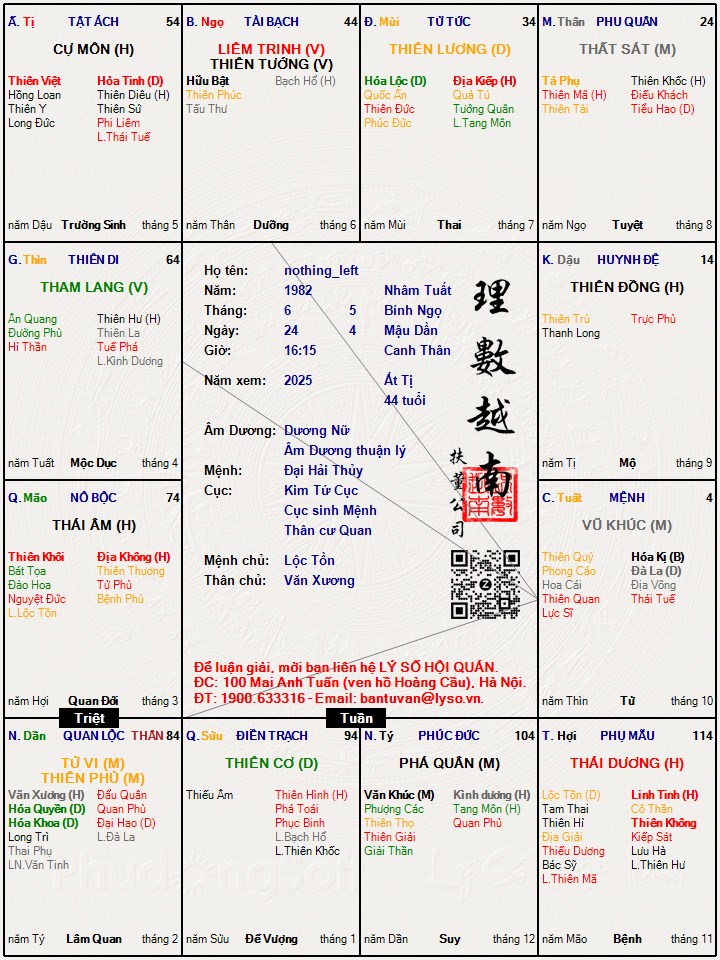 Ấ. Tị TẬT ÁCH 54
CỰ MÔN (H)
Thiên Việt Hỏa Tinh (D)
Hồng Loan Thiên Diêu (H)
Thiên Y Thiên Sứ
Long Đức Phi Liêm
L.Thái Tuế
năm Dậu Trường Sinh tháng 5
B. Ngọ TÀI BẠCH 44
LIÊM TRINH (V)
THIÊN TƯỚNG (V)
Hữu Bật Bạch Hổ (H)
Thiên Phúc
Tấu Thư
năm Thân Dưỡng tháng 6
Đ. Mùi TỬ TỨC 34
THIÊN LƯƠNG (D)
Hóa Lộc (D) Địa Kiếp (H)
Quốc Ấn Quả Tú
Thiên Đức Tướng Quân
Phúc Đức L.Tang Môn
năm Mùi Thai tháng 7
M. Thân PHU QUÂN 24
THẤT SÁT (M)
Tả Phụ Thiên Khốc (H)
Thiên Mã (H) Điếu Khách
Thiên Tài Tiểu Hao (D)
năm Ngọ Tuyệt tháng 8
G. Thìn THIÊN DI 64
THAM LANG (V)
Ân Quang Thiên Hư (H)
Đường Phù Thiên La
Hỉ Thần Tuế Phá
L.Kình Dương
năm Tuất Mộc Dục tháng 4
Họ tên: nothing_left
Năm: 1982 Nhâm Tuất
Tháng: 6 5 Bính Ngọ
Ngày: 24 4 Mậu Dần
Giờ: 16:15 Canh Thân
Năm xem: 2025 Ất Tị
44 tuổi
Âm Dương: Dương Nữ
Âm Dương thuận lý
Mệnh: Đại Hải Thủy
Cục: Kim Tứ Cục
Cục sinh Mệnh
Thân cư Quan
Mệnh chủ: Lộc Tồn
Thân chủ: Văn Xương
理數越南
扶董公司
Để luận giải, mời bạn liên hệ LÝ SỐ HỘI QUÁN.
ĐC: 100 Mai Anh Tuấn (ven hồ Hoàng Cầu), Hà Nội.
ĐT: 1900.633316 - Email: bantuvan@lyso.vn.
K. Dậu HUYNH ĐỆ 14
THIÊN ĐỒNG (H)
Thiên Trù Trực Phù
Thanh Long
năm Tị Mộ tháng 9
Q. Mão NÔ BỘC 74
THÁI ÂM (H)
Thiên Khôi Địa Không (H)
Bát Tọa Thiên Thương
Đào Hoa Tử Phù
Nguyệt Đức Bệnh Phù
L.Lộc Tồn
năm Hợi Quan Đới tháng 3
C. Tuất MỆNH 4
VŨ KHÚC (M)
Thiên Quý Hóa Kị (B)
Phong Cáo Đà La (D)
Hoa Cái Địa Võng
Thiên Quan Thái Tuế
Lực Sĩ
năm Thìn Tử tháng 10
Triệt
Tuần
N. Dần QUAN LỘC THÂN 84
TỬ VI (M)
THIÊN PHỦ (M)
Văn Xương (H) Đẩu Quân
Hóa Quyền (D) Quan Phù
Hóa Khoa (D) Đại Hao (D)
Long Trì L.Đà La
Thai Phụ
LN.Văn Tinh
năm Tý Lâm Quan tháng 2
Q. Sửu ĐIỀN TRẠCH 94
THIÊN CƠ (D)
Thiếu Âm Thiên Hình (H)
Phá Toái
Phục Binh
L.Bạch Hổ
L.Thiên Khốc
năm Sửu Đế Vượng tháng 1
N. Tý PHÚC ĐỨC 104
PHÁ QUÂN (M)
Văn Khúc (M) Kình dương (H)
Phượng Các Tang Môn (H)
Thiên Thọ Quan Phủ
Thiên Giải
Giải Thần
năm Dần Suy tháng 12
T. Hợi PHỤ MẪU 114
THÁI DƯƠNG (H)
Lộc Tồn (D) Linh Tinh (H)
Tam Thai Cô Thần
Thiên Hỉ Thiên Không
Địa Giải Kiếp Sát
Thiếu Dương Lưu Hà
Bác Sỹ L.Thiên Hư
L.Thiên Mã
năm Mão Bệnh tháng 11